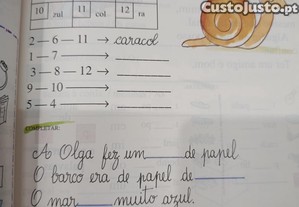 CustoJusto.pt
10 zul 11 col 12 ra
2 — 6 — 11 → caracol
1 — 7 →
3 — 8 — 12 →
9 — 10 →
5 — 4 →
COMPLETAR:
A Olga fez um ____ de papel
O barco era de papel de ____
O mar ____ muito azul.